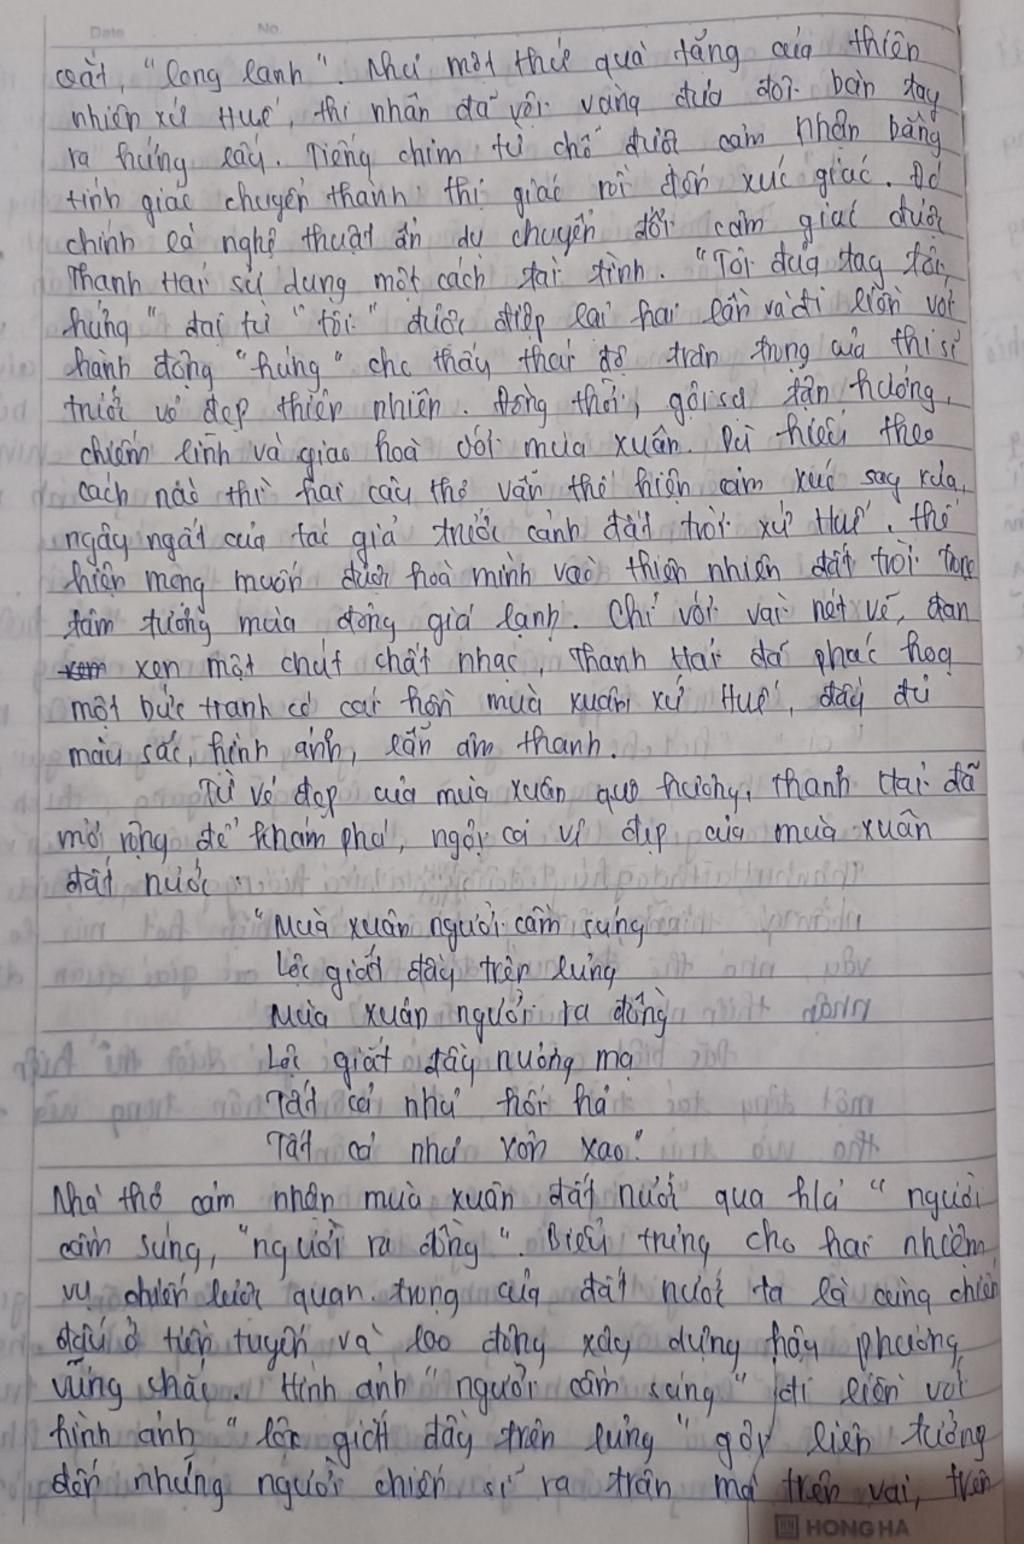 Date No.
cất, "long lanh". Như một thứ quà tặng của thiên
nhiên xứ Huế, thi nhân đã vội vàng đưa đôi bàn tay
ra hứng lấy. Tiếng chim từ chỗ được cảm nhận bằng
tính giác chuyển thành thị giác rồi đến xúc giác. Đó
chính là nghệ thuật ẩn dụ chuyển đổi cảm giác được
Thanh Hải sử dụng một cách tài tình. "Tôi đưa tay tôi
hứng" đại từ "tôi" được điệp lại hai lần và đi liền với
hành động "hứng" cho thấy thái độ trân trọng của thi sĩ
trước vẻ đẹp thiên nhiên. Đồng thời, gợi sự tận hưởng,
chiếm lĩnh và giao hoà với mùa xuân. Dù hiểu theo
cách nào thì hai câu thơ vẫn thể hiện cảm xúc say xưa,
ngây ngất của tác giả trước cảnh đất trời xứ Huế, thể
hiện mong muốn được hoà mình vào thiên nhiên đất trời trong
tâm tưởng mùa đông giá lạnh. Chỉ với vài nét vẽ, đan
xem xen một chút chất nhạc, Thanh Hải đã phác hoạ
một bức tranh có cái hồn mùa xuân xứ Huế, đầy đủ
màu sắc, hình ảnh, lẫn âm thanh.
Từ vẻ đẹp của mùa xuân quê hương, Thanh Hải đã
mở rộng để khám phá, ngợi ca vẻ đẹp của mùa xuân
đất nước:
"Mùa xuân người cầm súng
Lộc giắt đầy trên lưng
Mùa xuân người ra đồng
Lộc giắt đầy nương mạ
Tất cả như hối hả
Tất cả như xôn xao."
Nhà thơ cảm nhận mùa xuân đất nước qua h/a "người
cầm súng, "người ra đồng". Biểu trưng cho hai nhiệm
vụ chiến lược quan trọng của đất nước ta là cùng chiến
đấu ở tiền tuyến và lao động xây dựng hậu phương
vững chắc. Hình ảnh "người cầm súng" đi liền với
hình ảnh "lộc giắt đầy trên lưng" gợi liên tưởng
đến những người chiến sĩ ra trận mà trên vai, trên
HONG HA